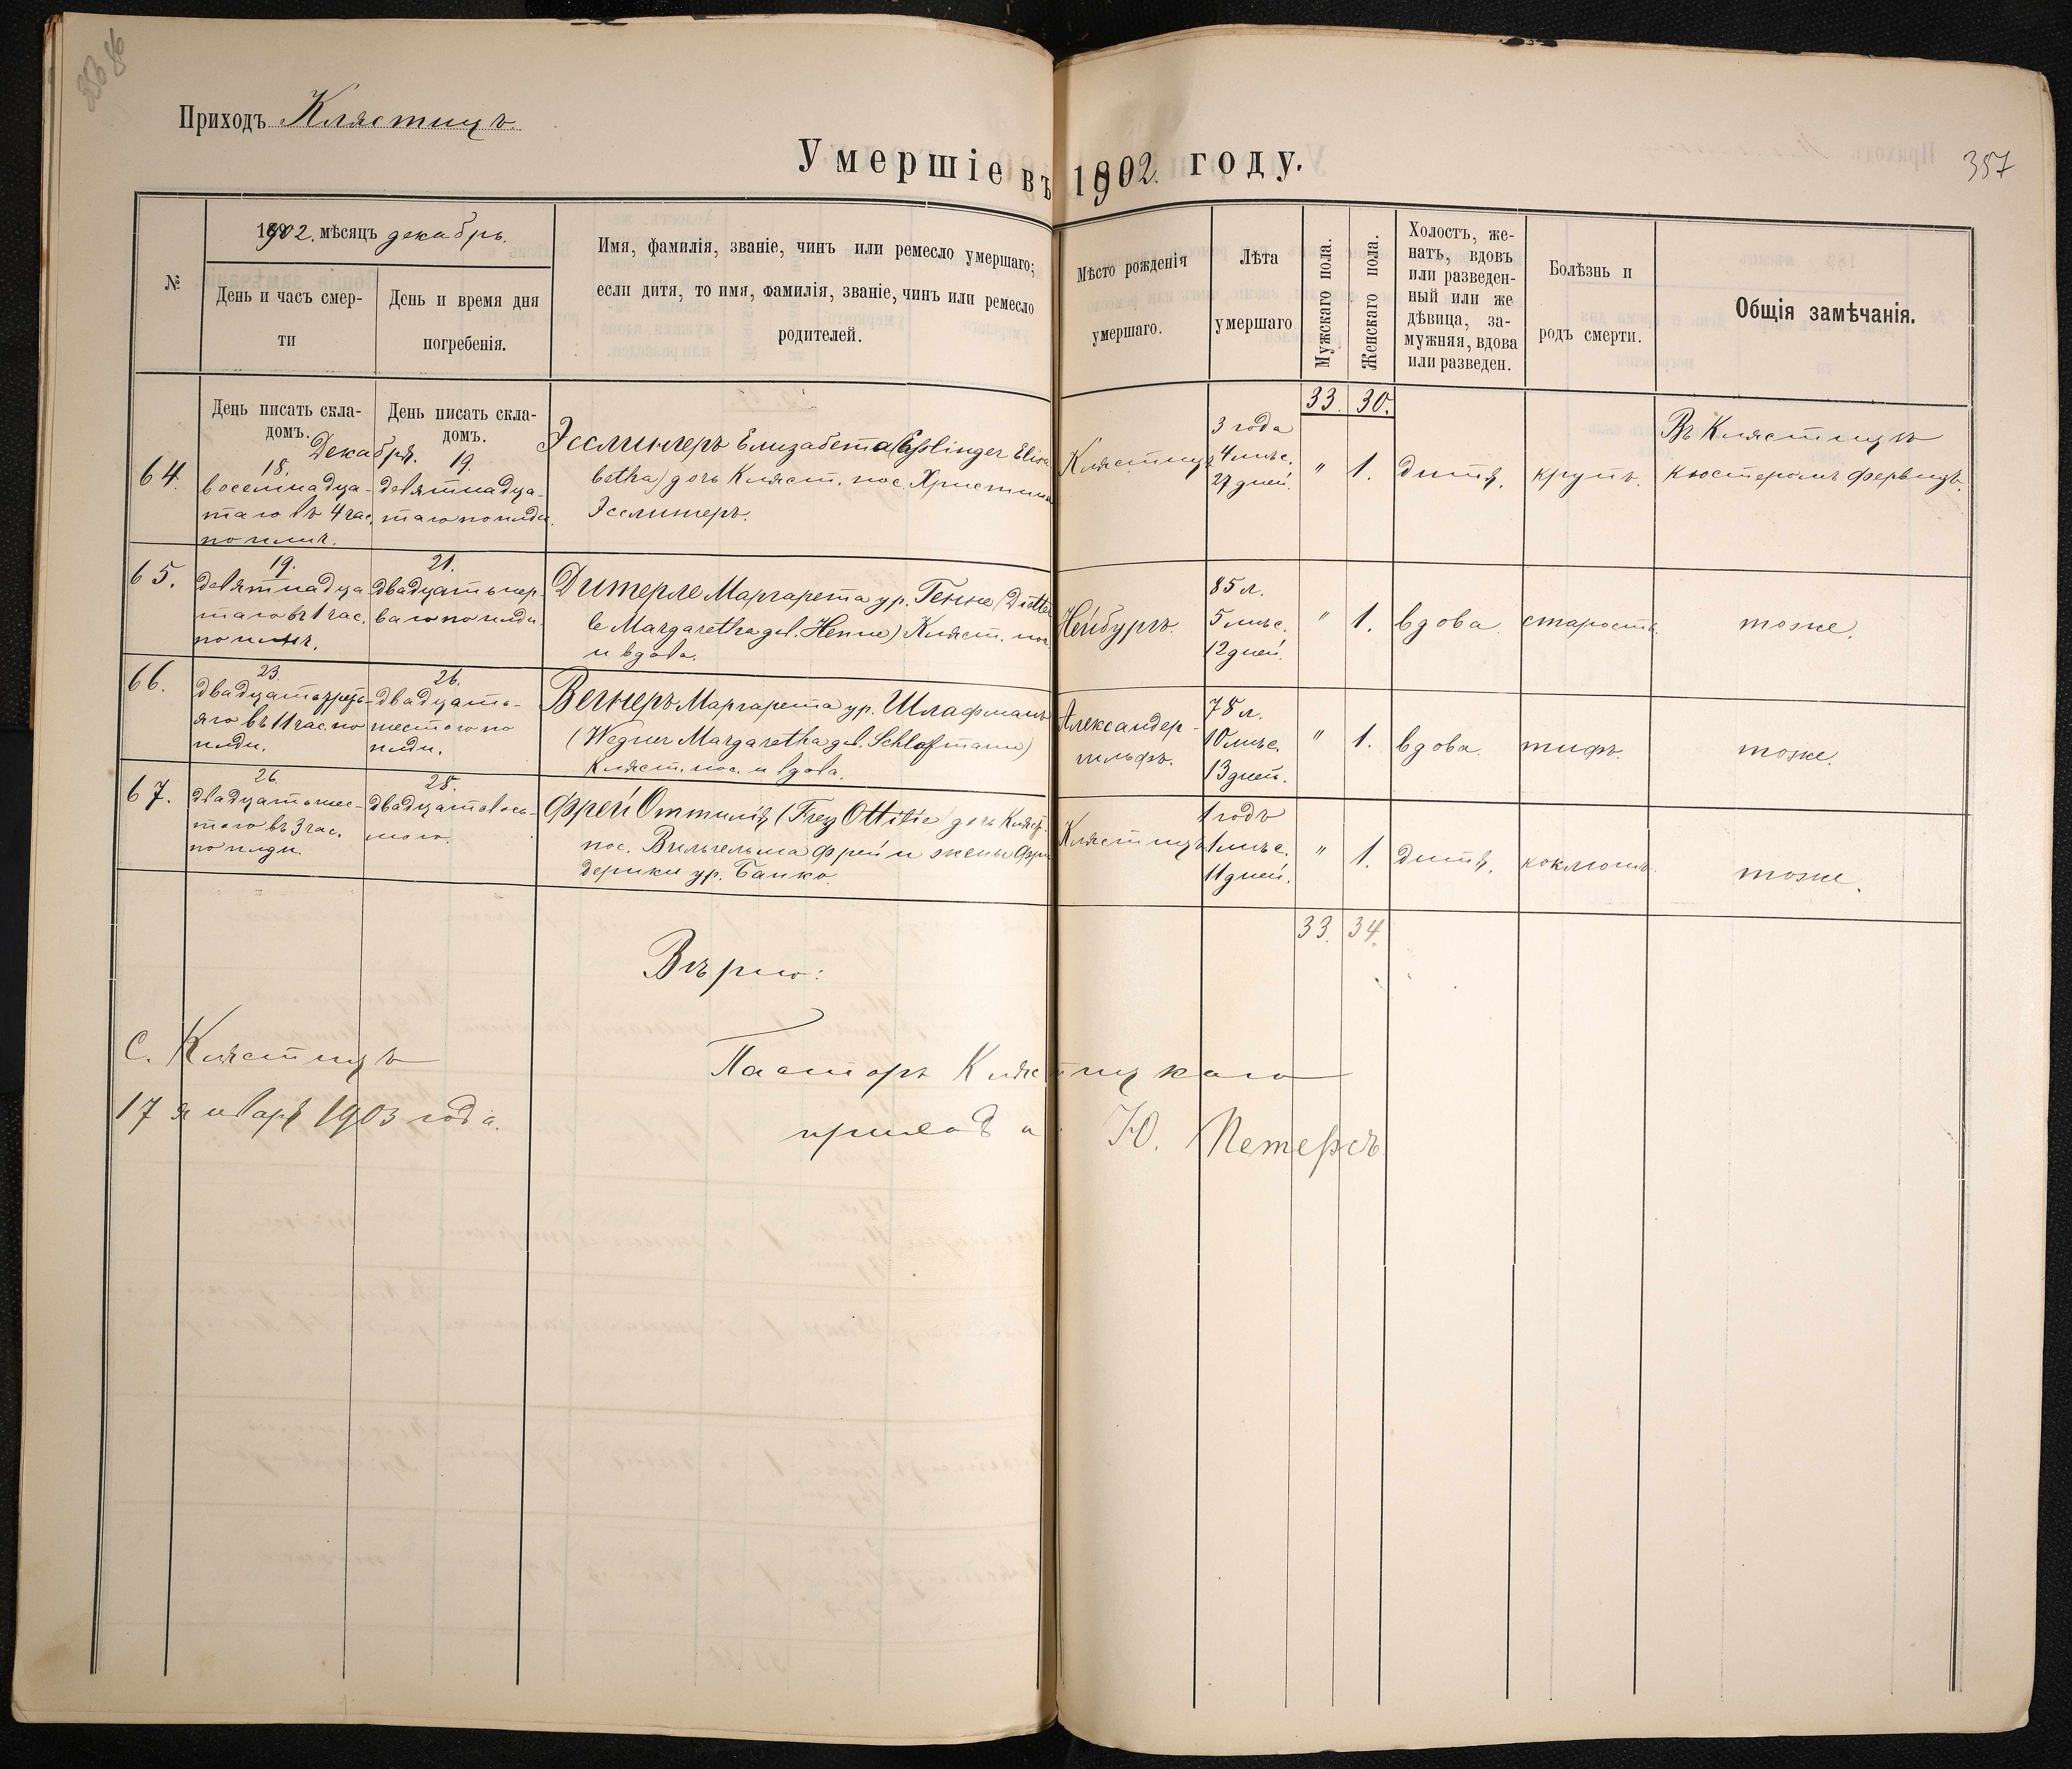 Приходъ Клястицъ.
Умершіе въ 1902. году.
357
№
1902. мѣсяцъ декабрь.
День и часъ смер-
ти
День и время дня
погребенія.
Имя, фамилія, званіе, чинъ или ремесло умершаго;
если дитя, то имя, фамилія, званіе, чинъ или ремесло
родителей.
Мѣсто рожденія
умершаго.
Лѣта
умершаго
Мужскаго пола.
Женскаго пола.
Холостъ, же-
натъ, вдовъ
или разведен-
ный или же
дѣвица, за-
мужняя, вдова
или разведен.
Болѣзнь и
родъ смерти.
Общія замѣчанія.
День писать скла-
домъ.
День писать скла-
домъ.
33. 30.
Декабря.
64.
18.
восемнадца-
таго въ 4 час.
по полн.
19.
девятнадца-
таго по полдн.
Эсслингеръ Елизабета (Eßlinger Elisa
betha) дочь Кляст. пос. Христiана
Эсслингеръ.
Клястицъ
3 года
4 мѣс.
27 дней.
" 1.
дитя.
крупъ.
Въ Клястицѣ
кюстеромъ Фервицъ.
65.
19.
девятнадца
таго въ 1 час.
по полн.
21.
двадцать пер-
ваго по полдн.
Дитерле Маргарета ур. Генне (Dietter
le Margaretha geb. Henne) Кляст. пос.
и вдова.
Нейбургъ.
85 л.
5 мѣс.
12 дней.
" 1.
вдова.
старость.
тоже.
66.
23.
двадцать треть-
яго въ 11 час. по
полдн.
26.
двадцать-
шестого по
полдн.
Вегнеръ Маргарета ур. Шлафманъ
(Wegner Margaretha geb. Schlafmann)
Кляст. пос. и вдова.
Александер-
гильфъ.
78 л.
10 мѣс.
13 дней.
" 1.
вдова.
тифъ.
тоже.
67.
26.
двадцать шес-
того въ 3 час.
по полдн.
28.
двадцать вось-
мого.
Фрей Оттилія (Frey Ottilie) дочь Кляст.
пос. Вильгельма Фрей и жены Фри
дерики ур. Банко.
Клястицъ
1 годъ
1 мѣс.
11 дней.
" 1.
дитя.
коклюшъ.
тоже.
33. 34.
Вѣрно:
С. Клястицъ
17 января 1903 года.
Пасторъ Клястицкаго
прихода Ю. Петерсъ